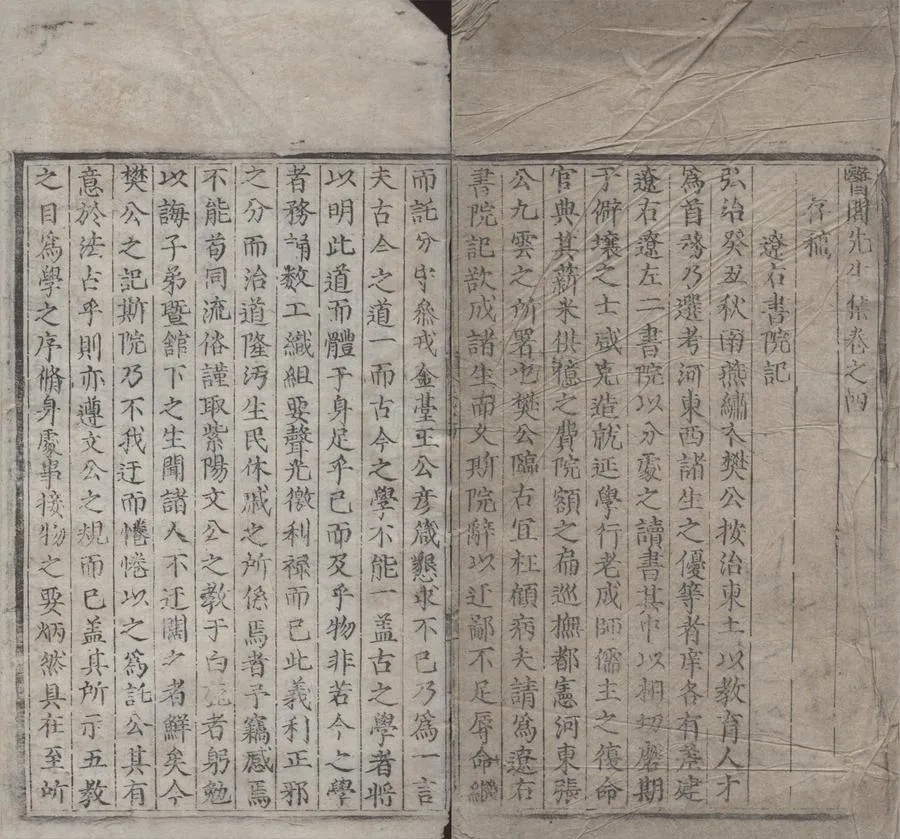 醫閭先生集卷之四
存稿
遼右書院記
弘治癸丑秋南燕繡衣樊公按治東土以教育人才
為首務乃選考河東西諸生之優等者庠各有差建
遼右遼左二書院以分處之讀書其中以相切磨期
于僻壤之士咸克造就延學行老成師儒主之復命
官典其薪米供億之費院額之扁巡撫都憲河東張
公九雲之所署也樊公臨右宜枉顧病夫請為遼右
書院記欲成諸生而文斯院辭以迂鄙不足辱命繼
而託分守參戎金臺王公彥箴懇求不已乃為一言
夫古今之道一而古今之學不能一盖古之學者將
以明此道而體于身足乎己而及乎物非若今之學
者務誦数工織組要聲光徼利祿而已此義利正邪
之分而治道隆汚生民休戚之所係焉者予竊慼焉
不能苟同流俗謹取紫陽文公之教于白鹿者躬勉
以誨子弟暨館下之生聞諸人不迂闊之者鮮矣今
樊公之記斯院乃不我迂而惓惓以之為託公其有
意於法古乎則亦遵文公之規而已盖其所示五教
之目為學之序脩身處事接物之要炳然具在至所